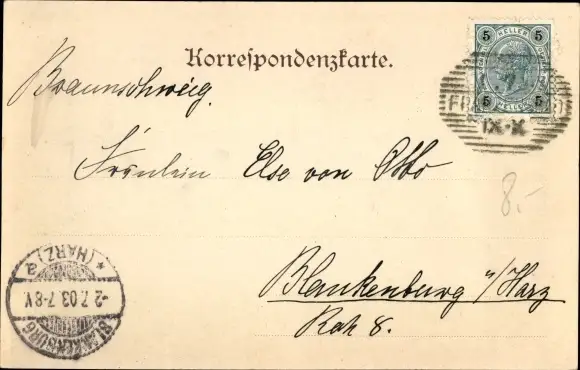 5 HELLER 5
5 HELLER 5
Korrespondenzkarte.
Braunschweig.
IX·X
Fräulein Else von Otto
8.-
Blankenburg a/Harz
8.
BLANKENBURG
-2.7.03.7-8V.
* (HARZ) a